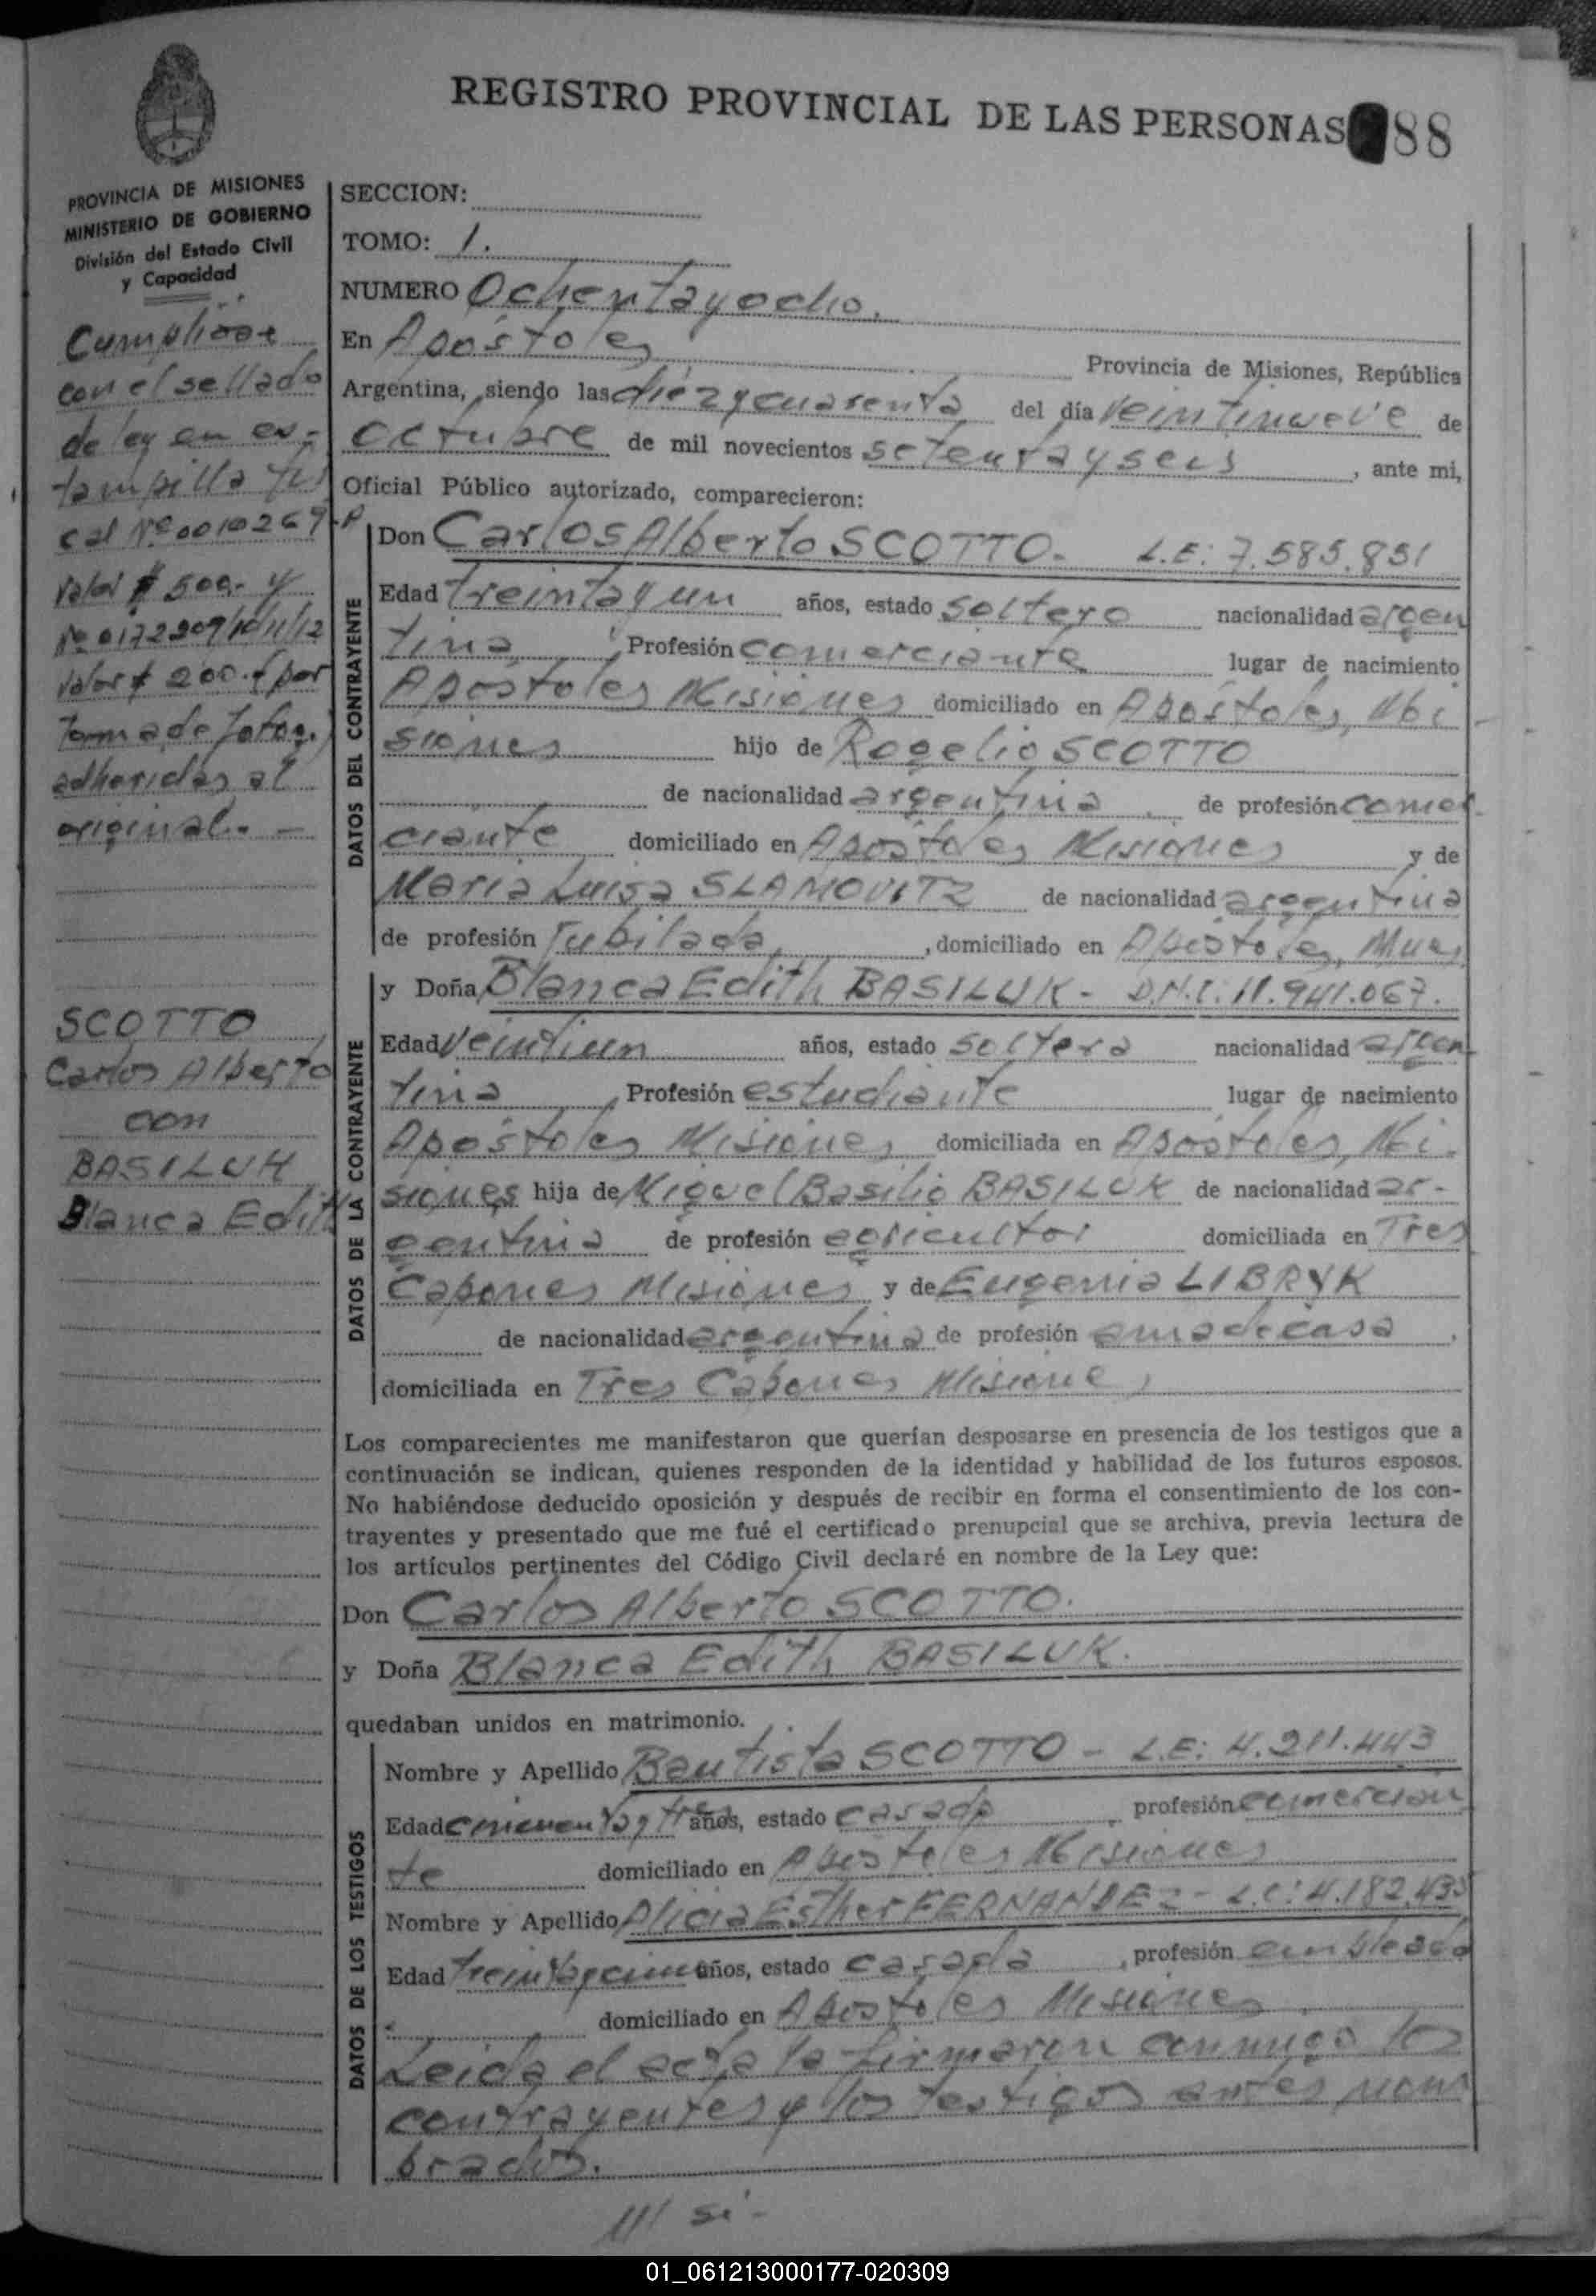 REGISTRO PROVINCIAL DE LAS PERSONAS 88
PROVINCIA DE MISIONES
MINISTERIO DE GOBIERNO
División del Estado Civil
y Capacidad
Cumplióse
con el sellado
de ley en es-
tampilla fis
cal Nº 0010269-A
valor $ 500.- y
Nº 0172909/10/11/12
valor $ 200.-
adheridas al
original. -
SCOTTO
Carlos Alberto
con
BASILUK
Blanca Edith
SECCION:
TOMO: 1.
NUMERO Ochentayocho.
En Apóstoles Provincia de Misiones, República
Argentina, siendo las diezycuarenta del día veintinueve de
octubre de mil novecientos setentayseis, ante mi,
Oficial Público autorizado, comparecieron:
DATOS DEL CONTRAYENTE
Don Carlos Alberto SCOTTO.- L.E: 7.585.851
Edad treintayun años, estado soltero nacionalidad argen
tina, Profesión comerciante lugar de nacimiento
Apóstoles Misiones domiciliado en Apóstoles, Mi
siones hijo de Rogelio SCOTTO
de nacionalidad argentina, de profesión comer
ciante domiciliado en Apóstoles Misiones y de
Maria Luisa SLAMOVITZ de nacionalidad argentina
de profesión Jubilada, domiciliado en Apóstoles, Mnes
DATOS DE LA CONTRAYENTE
y Doña Blanca Edith BASILUK - D.N.I: 11.941.067.
Edad veintiun años, estado soltera nacionalidad argen
tina, Profesión estudiante lugar de nacimiento
Apóstoles Misiones domiciliada en Apóstoles, Mi-
siones hija de Miguel Basilio BASILUK de nacionalidad ar-
gentina de profesión agricultor domiciliada en Tres
Capones Misiones y de Eugenia LIBRYK
de nacionalidad argentina de profesión ama de casa,
domiciliada en Tres Capones Misiones
Los comparecientes me manifestaron que querían desposarse en presencia de los testigos que a
continuación se indican, quienes responden de la identidad y habilidad de los futuros esposos.
No habiéndose deducido oposición y después de recibir en forma el consentimiento de los con-
trayentes y presentado que me fué el certificado prenupcial que se archiva, previa lectura de
los artículos pertinentes del Código Civil declaré en nombre de la Ley que:
Don Carlos Alberto SCOTTO.
y Doña Blanca Edith BASILUK.
quedaban unidos en matrimonio.
DATOS DE LOS TESTIGOS
Nombre y Apellido Bautista SCOTTO - L.E: 4.211.443
Edad cincuentaytres años, estado casado, profesión comercian
te domiciliado en Apóstoles Misiones
Nombre y Apellido Alicia Esther FERNANDEZ - L.C: 4.182.435
Edad años, estado casada, profesión empleada
domiciliado en Apóstoles Misiones.
Leida el acta la firmaron conmigo los
contrayentes y los testigos antes nom
brados.
/// si -
01_061213000177-020309